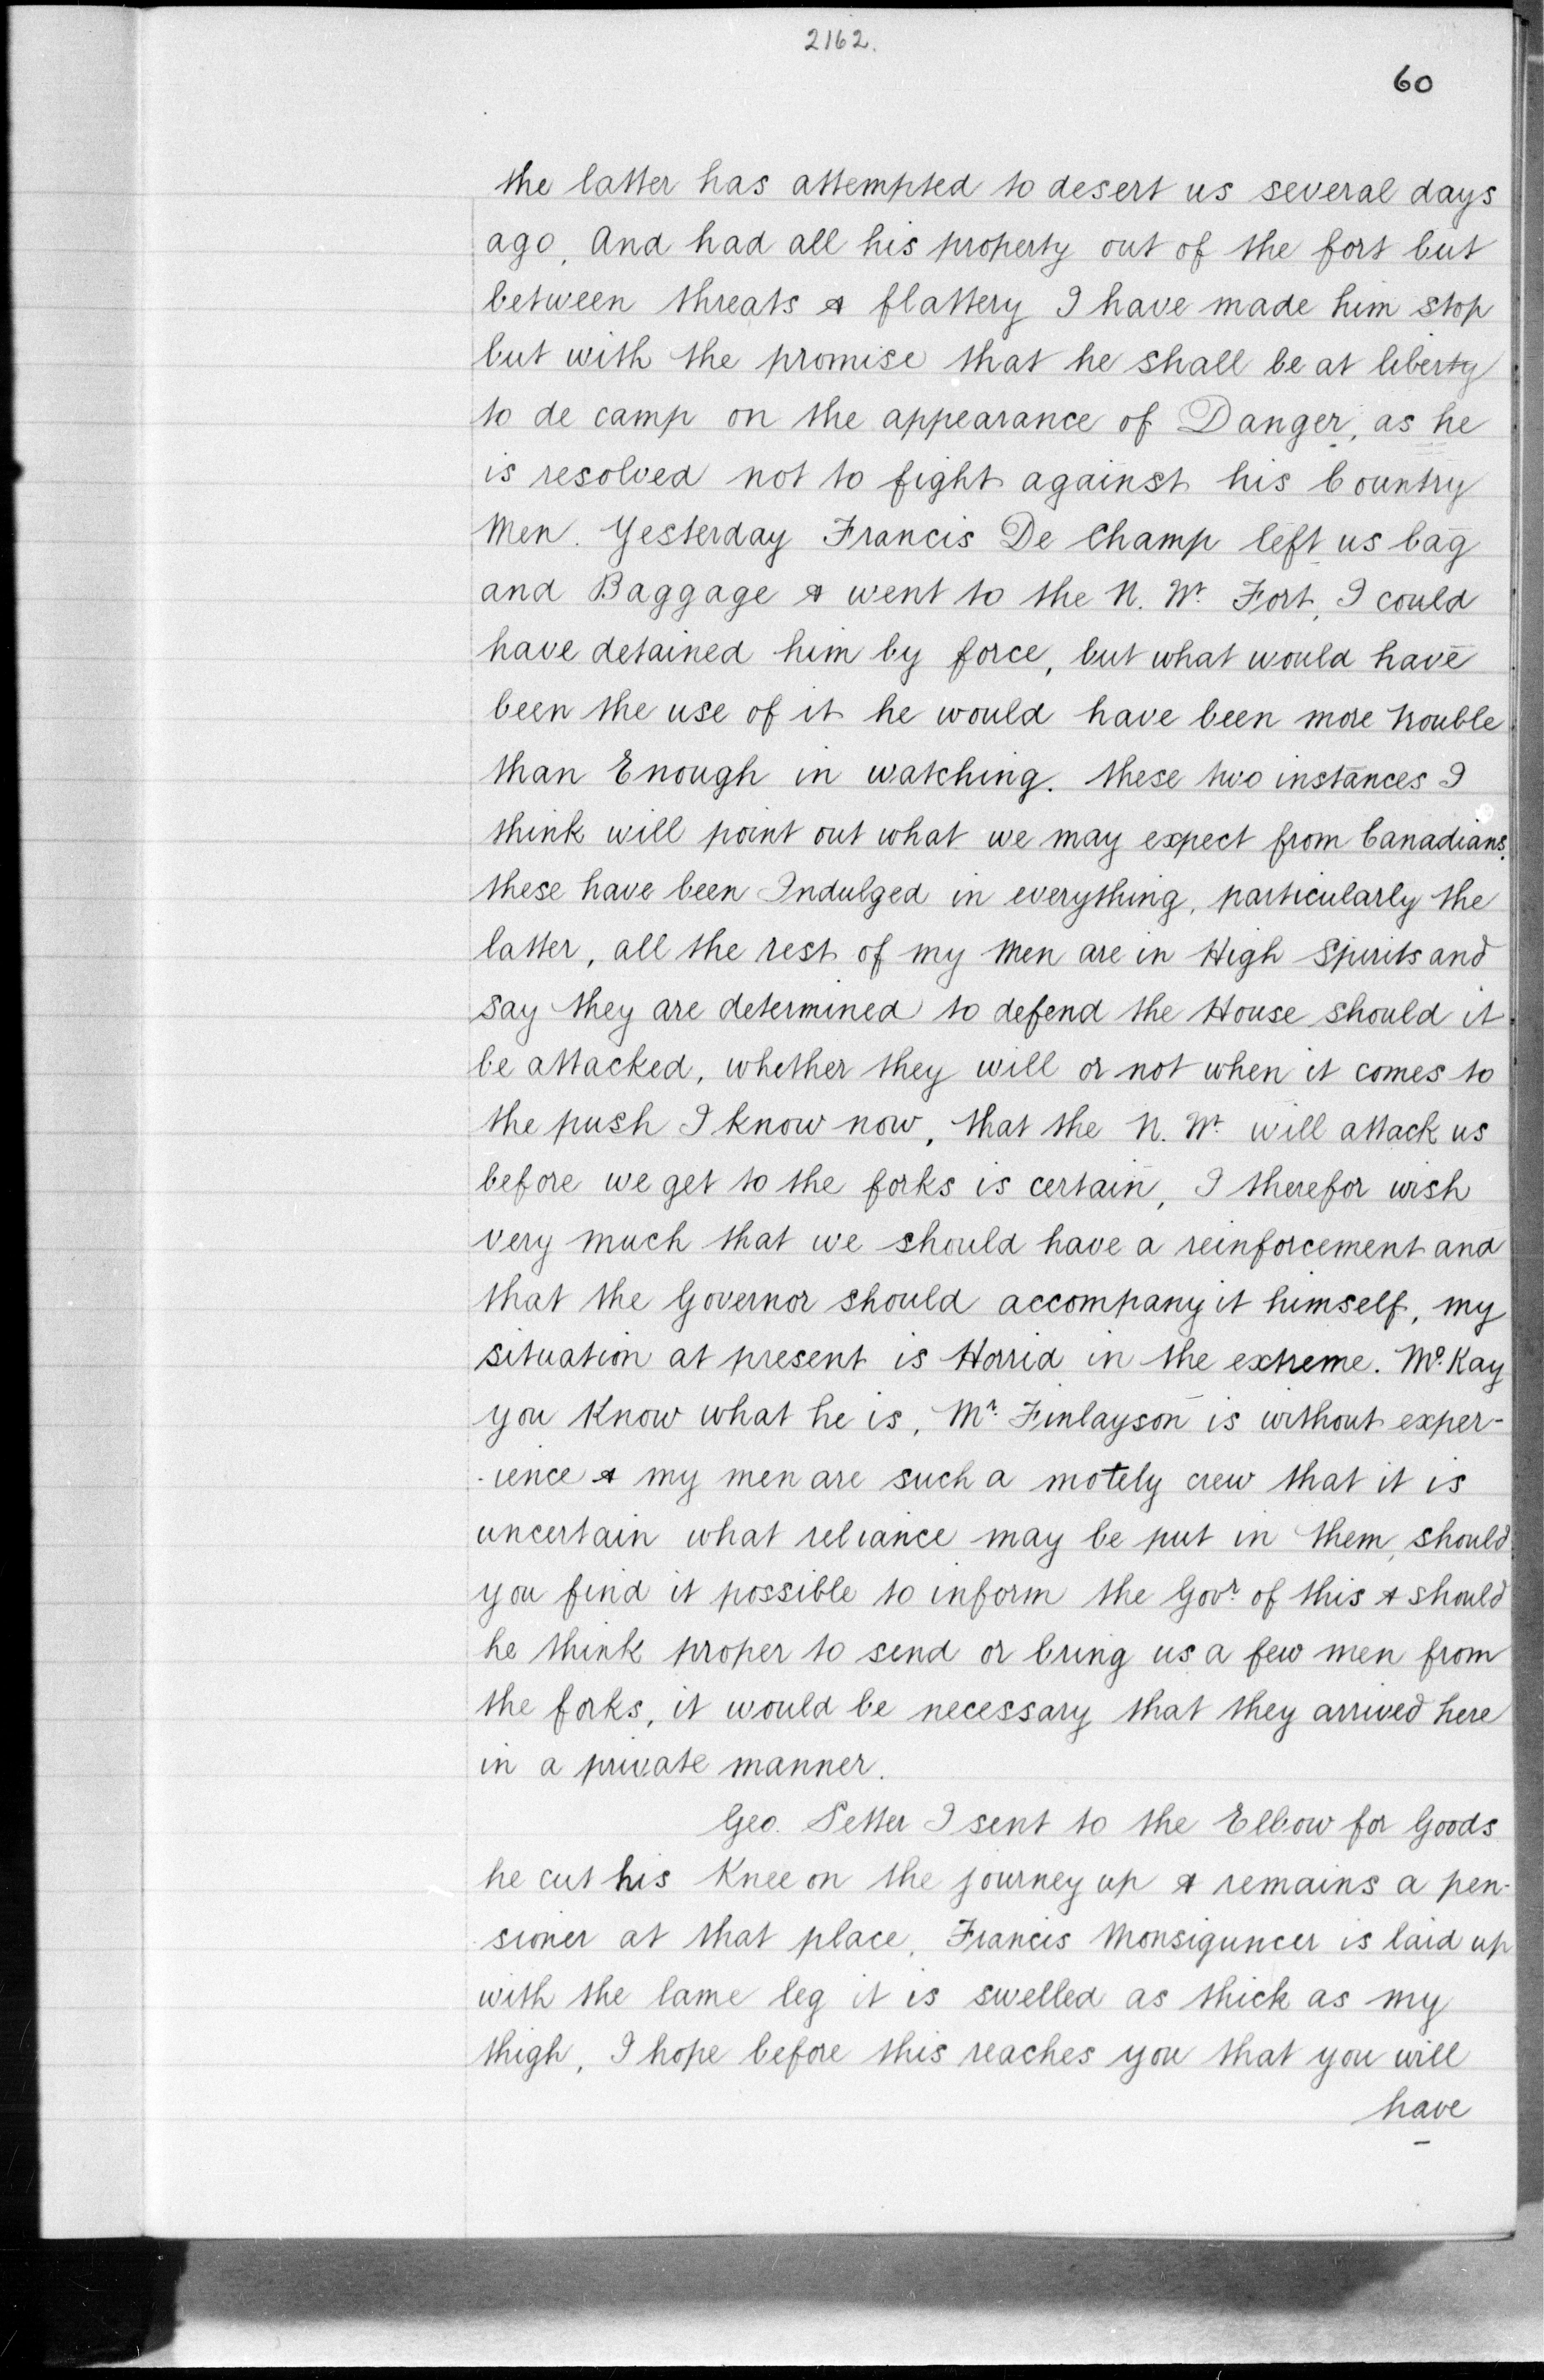 2162.
60
the latter has attempted to desert us several days
ago, And had all his property out of the fort but
between threats & flattery I have made him stop
but with the promise that he shall be at liberty
to de camp on the appearance of Danger, as he
is resolved not to fight against his Country
Men. Yesterday Francis De Champ left us bag
and Baggage & went to the N. Wt. Fort, I could
have detained him by force, but what would have
been the use of it he would have been more trouble
than Enough in watching. these two instances I
think will point out what we may expect from Canadians.
these have been Indulged in everything, particularly the
latter, all the rest of my men are in High Spirits and
say they are determined to defend the House should it
be attacked, whether they will or not when it comes to
the push I know now, that the N. Wt. will attack us
before we get to the forks is certain, I therefor wish
very much that we should have a reinforcement and
that the Governor should accompany it himself, my
situation at present is Horrid in the extreme. Mc. Kay
you Know what he is, Mr. Finlayson is without exper-
-ience & my men are such a motely crew that it is
uncertain what reliance may be put in them, should
you find it possible to inform the Govr. of this & should
he think proper to send or bring us a few men from
the forks, it would be necessary that they arrived here
in a private manner.
Geo. Setter I sent to the Elbow for Goods
he cut his Knee on the journey up & remains a pen-
-sioner at that place, Francis Monsiguncer is laid up
with the lame leg it is swelled as thick as my
thigh, I hope before this reaches you that you will
have